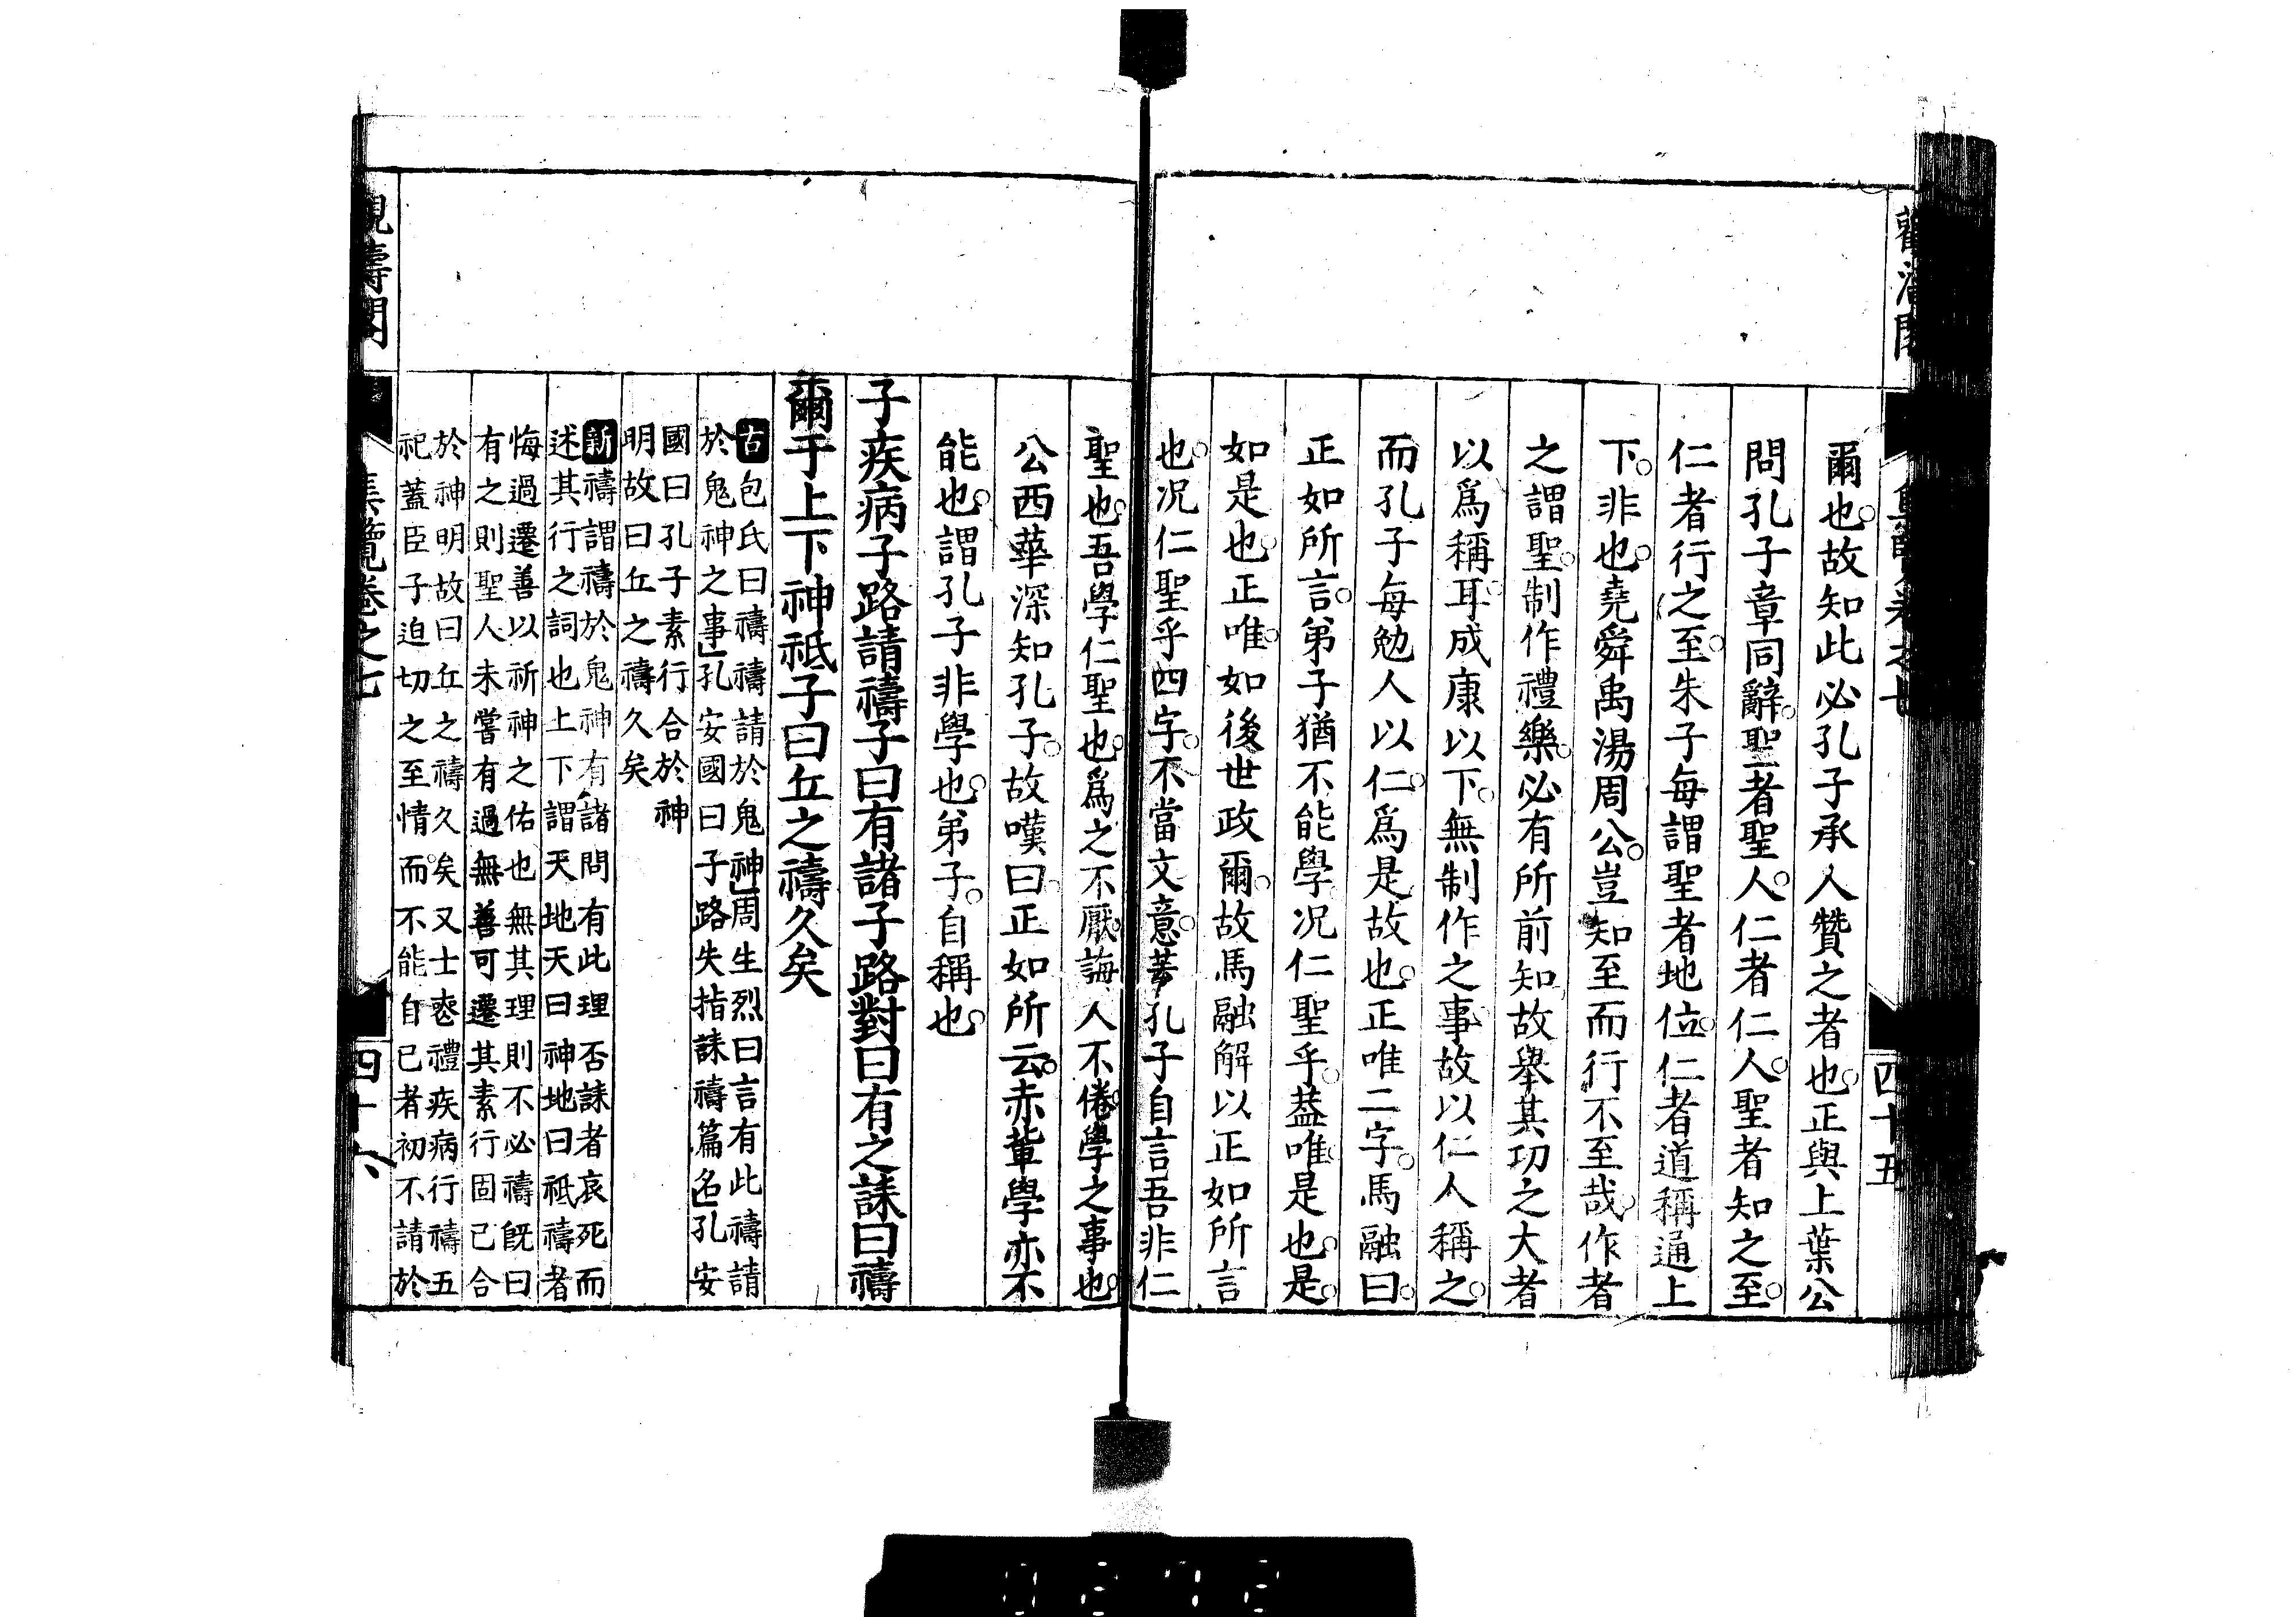 爾也故知此必孔子承人贊之者也正與上葉公
問孔子章同辭聖者聖人仁者仁人聖者知之至
仁者行之至朱子每謂聖者地位仁者道稱通上
下非也堯舜禹湯周公豈知至而行不至哉作者
之謂聖制作禮樂必有所前知故舉其功之大者
以爲稱耳成康以下無制作之事故以仁人稱之
而孔子每勉人以仁爲是故也正唯二字馬融曰
正如所言弟子猶不能學况仁聖乎葢唯是也是
如是也正唯如後世政爾故馬融解以正如所言
也况仁聖乎四字不當文意葢孔子自言吾非仁
聖也吾學仁聖也爲之不厭誨人不倦學之事也
公西華深知孔子故嘆曰正如所云赤輩學亦不
能也謂孔子非學也弟子自稱也
子疾病子路請禱子曰有諸子路對曰有之誄曰禱
爾于上下神祇子曰丘之禱久矣
古包氏曰禱禱請於鬼神周生烈曰言有此禱請
於鬼神之事孔安國曰子路失指誄禱篇名孔安
國曰孔子素行合於神
明故曰丘之禱久矣
新禱謂禱於鬼神有諸問有此理否誄者哀死而
述其行之詞也上下謂天地天曰神地曰祇禱者
悔過遷善以祈神之佑也無其理則不必禱旣曰
有之則聖人未嘗有過無善可遷其素行固已合
於神明故曰丘之禱久矣又士喪禮疾病行禱五
祀蓋臣子迫切之至情而不能自已者初不請於
集覽卷之七
四十六
四十五